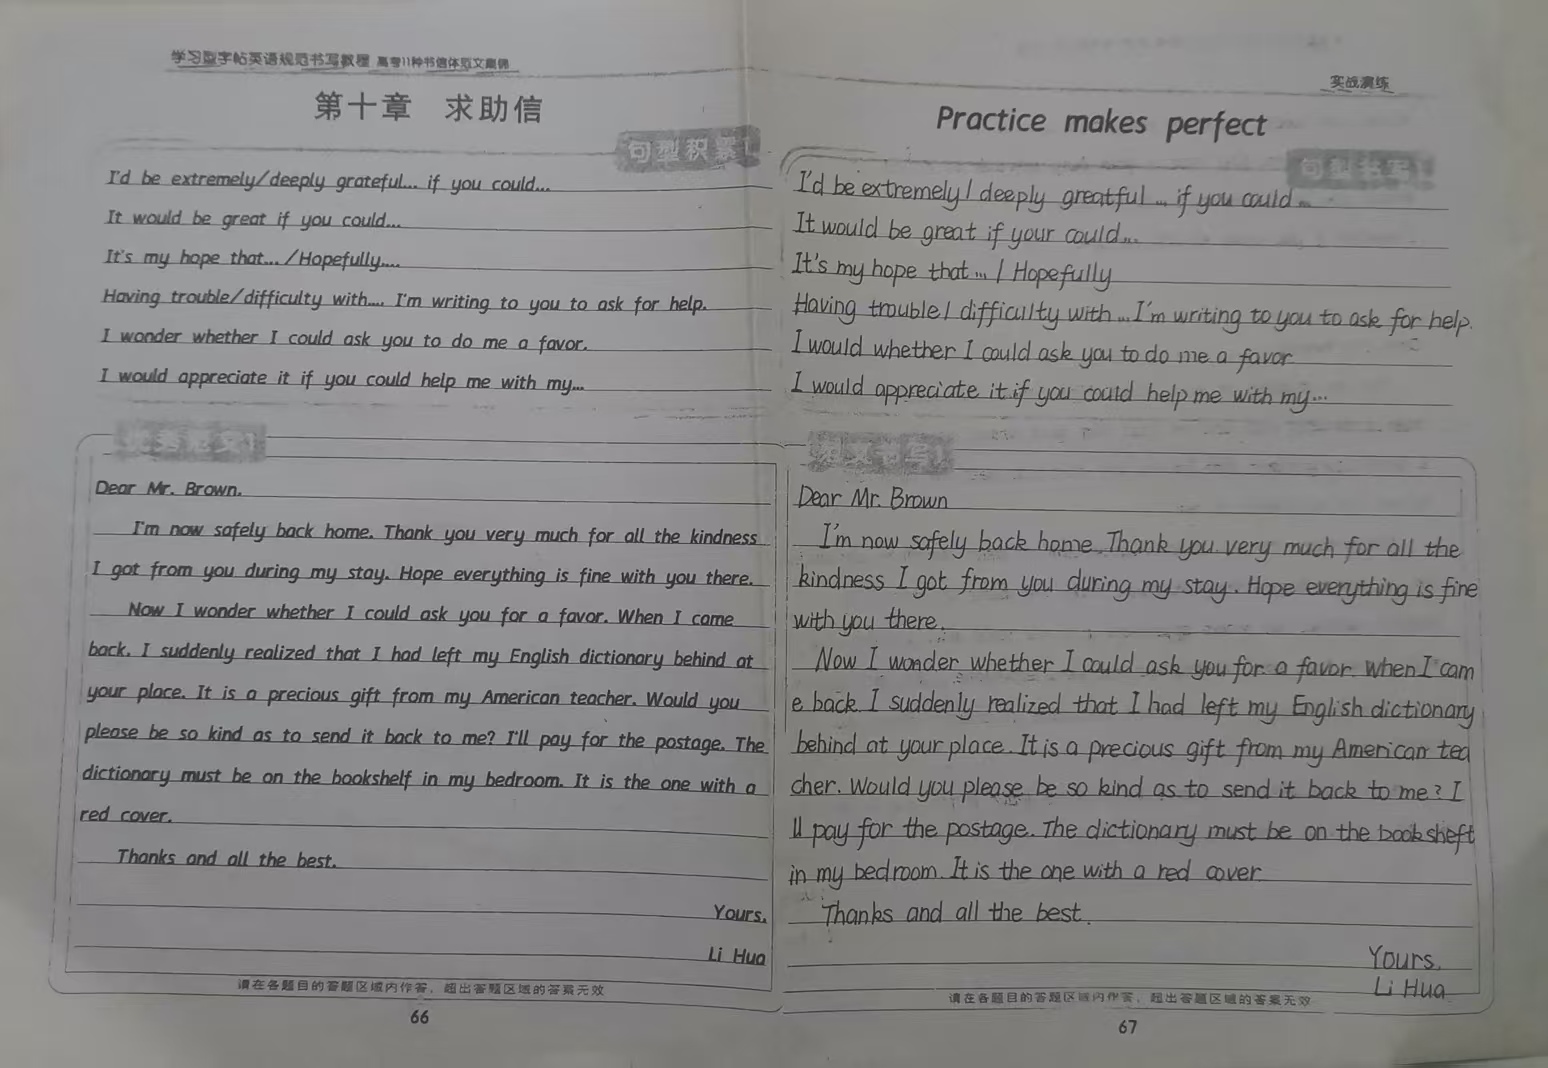 学习型字帖英语规范书写教程 高考11种书信体范文集锦
第十章 求助信
句型积累1
I'd be extremely/deeply grateful... if you could...
It would be great if you could...
It's my hope that... /Hopefully....
Having trouble/difficulty with.... I'm writing to you to ask for help.
I wonder whether I could ask you to do me a favor.
I would appreciate it if you could help me with my...
优秀范文1
Dear Mr. Brown.
I'm now safely back home. Thank you very much for all the kindness
I got from you during my stay. Hope everything is fine with you there.
Now I wonder whether I could ask you for a favor. When I came
back. I suddenly realized that I had left my English dictionary behind at
your place. It is a precious gift from my American teacher. Would you
please be so kind as to send it back to me? I'll pay for the postage. The
dictionary must be on the bookshelf in my bedroom. It is the one with a
red cover.
Thanks and all the best.
Yours.
Li Hua
请在各题目的答题区域内作答，超出答题区域的答案无效
66
实战演练
Practice makes perfect
句型书写1
I'd be extremely / deeply greatful ... if you could ...
It would be great if your could...
It's my hope that ... / Hopefully
Having trouble / difficulty with ... I'm writing to you to ask for help.
I would whether I could ask you to do me a favor
I would appreciate it if you could help me with my ...
范文书写1
Dear Mr. Brown
I'm now safely back home. Thank you very much for all the
kindness I got from you during my stay. Hope everything is fine
with you there.
Now I wonder whether I could ask you for a favor. when I cam
e back I suddenly realized that I had left my English dictionary
behind at your place. It is a precious gift from my American tea
cher. Would you please be so kind as to send it back to me? I
ll pay for the postage. The dictionary must be on the booksheft
in my bedroom. It is the one with a red cover
Thanks and all the best.
Yours.
Li Hua
请在各题目的答题区域内作答，超出答题区域的答案无效
67